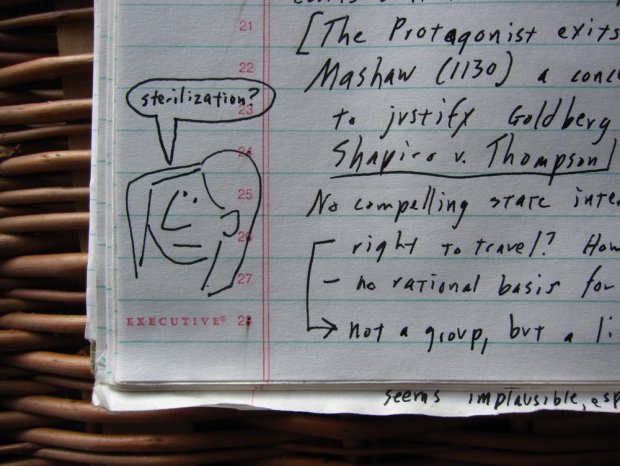 21
[The Protagonist exits
22
Mashaw (1130) a conc
sterilization?
23
to justify Goldberg
24
Shapiro v. Thompson]
25
No compelling state inte
26
right to travel? How
27
- no rational basis for
EXECUTIVE® 28
not a group, but a li
seems implausible, esp